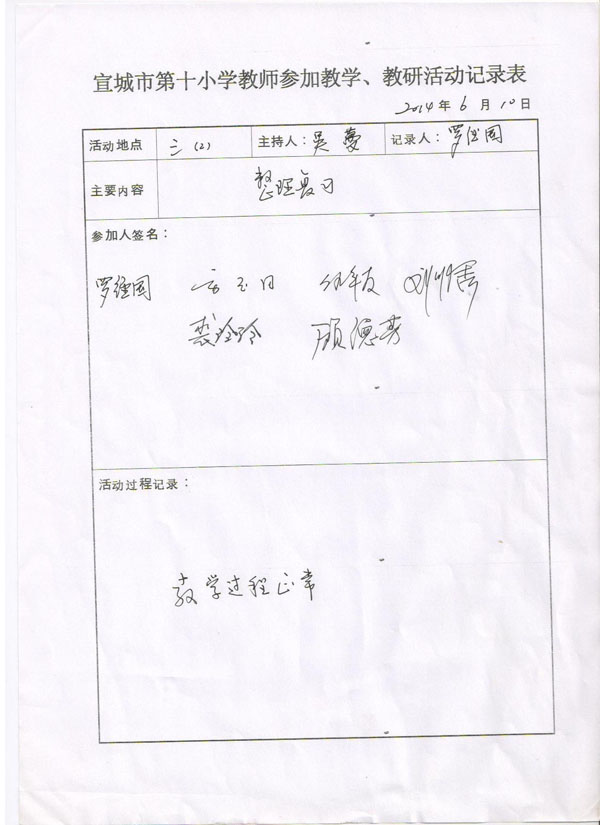 宣城市第十小学教师参加教学、教研活动记录表
2014年6月10日
活动地点 三(2) 主持人：吴 记录人：罗国
主要内容 整理复习
参加人签名：
罗国
龚玲玲 顾德芳
活动过程记录：
教学过程正常